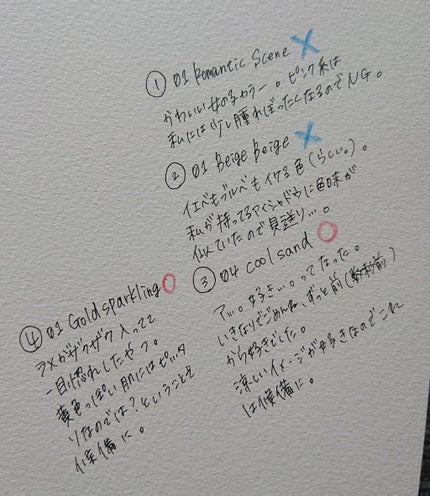 ① 01 Romantic Scene ×
かわいい女の子カラー。ピンク系は
私には少し腫れぼったくなるのでNG。
② 01 Beige Beige ×
イエベもブルベもイケる色(らしい。)。
私が持ってるアイシャドウに色味が
似ていたので見送り…。
③ 04 cool sand ○
ア…。好き…。ってなった。
いきなりでごめんね、ずっと前(数秒前)
から好きでした。
涼しいイメージが好きなのでこれ
は候補に。
④ 01 Gold sparkling ○
ラメがザクザク入ってて
一目惚れしたやつ。
黄色っぽい肌にはピッタ
リなのでは?ということで
候補に。